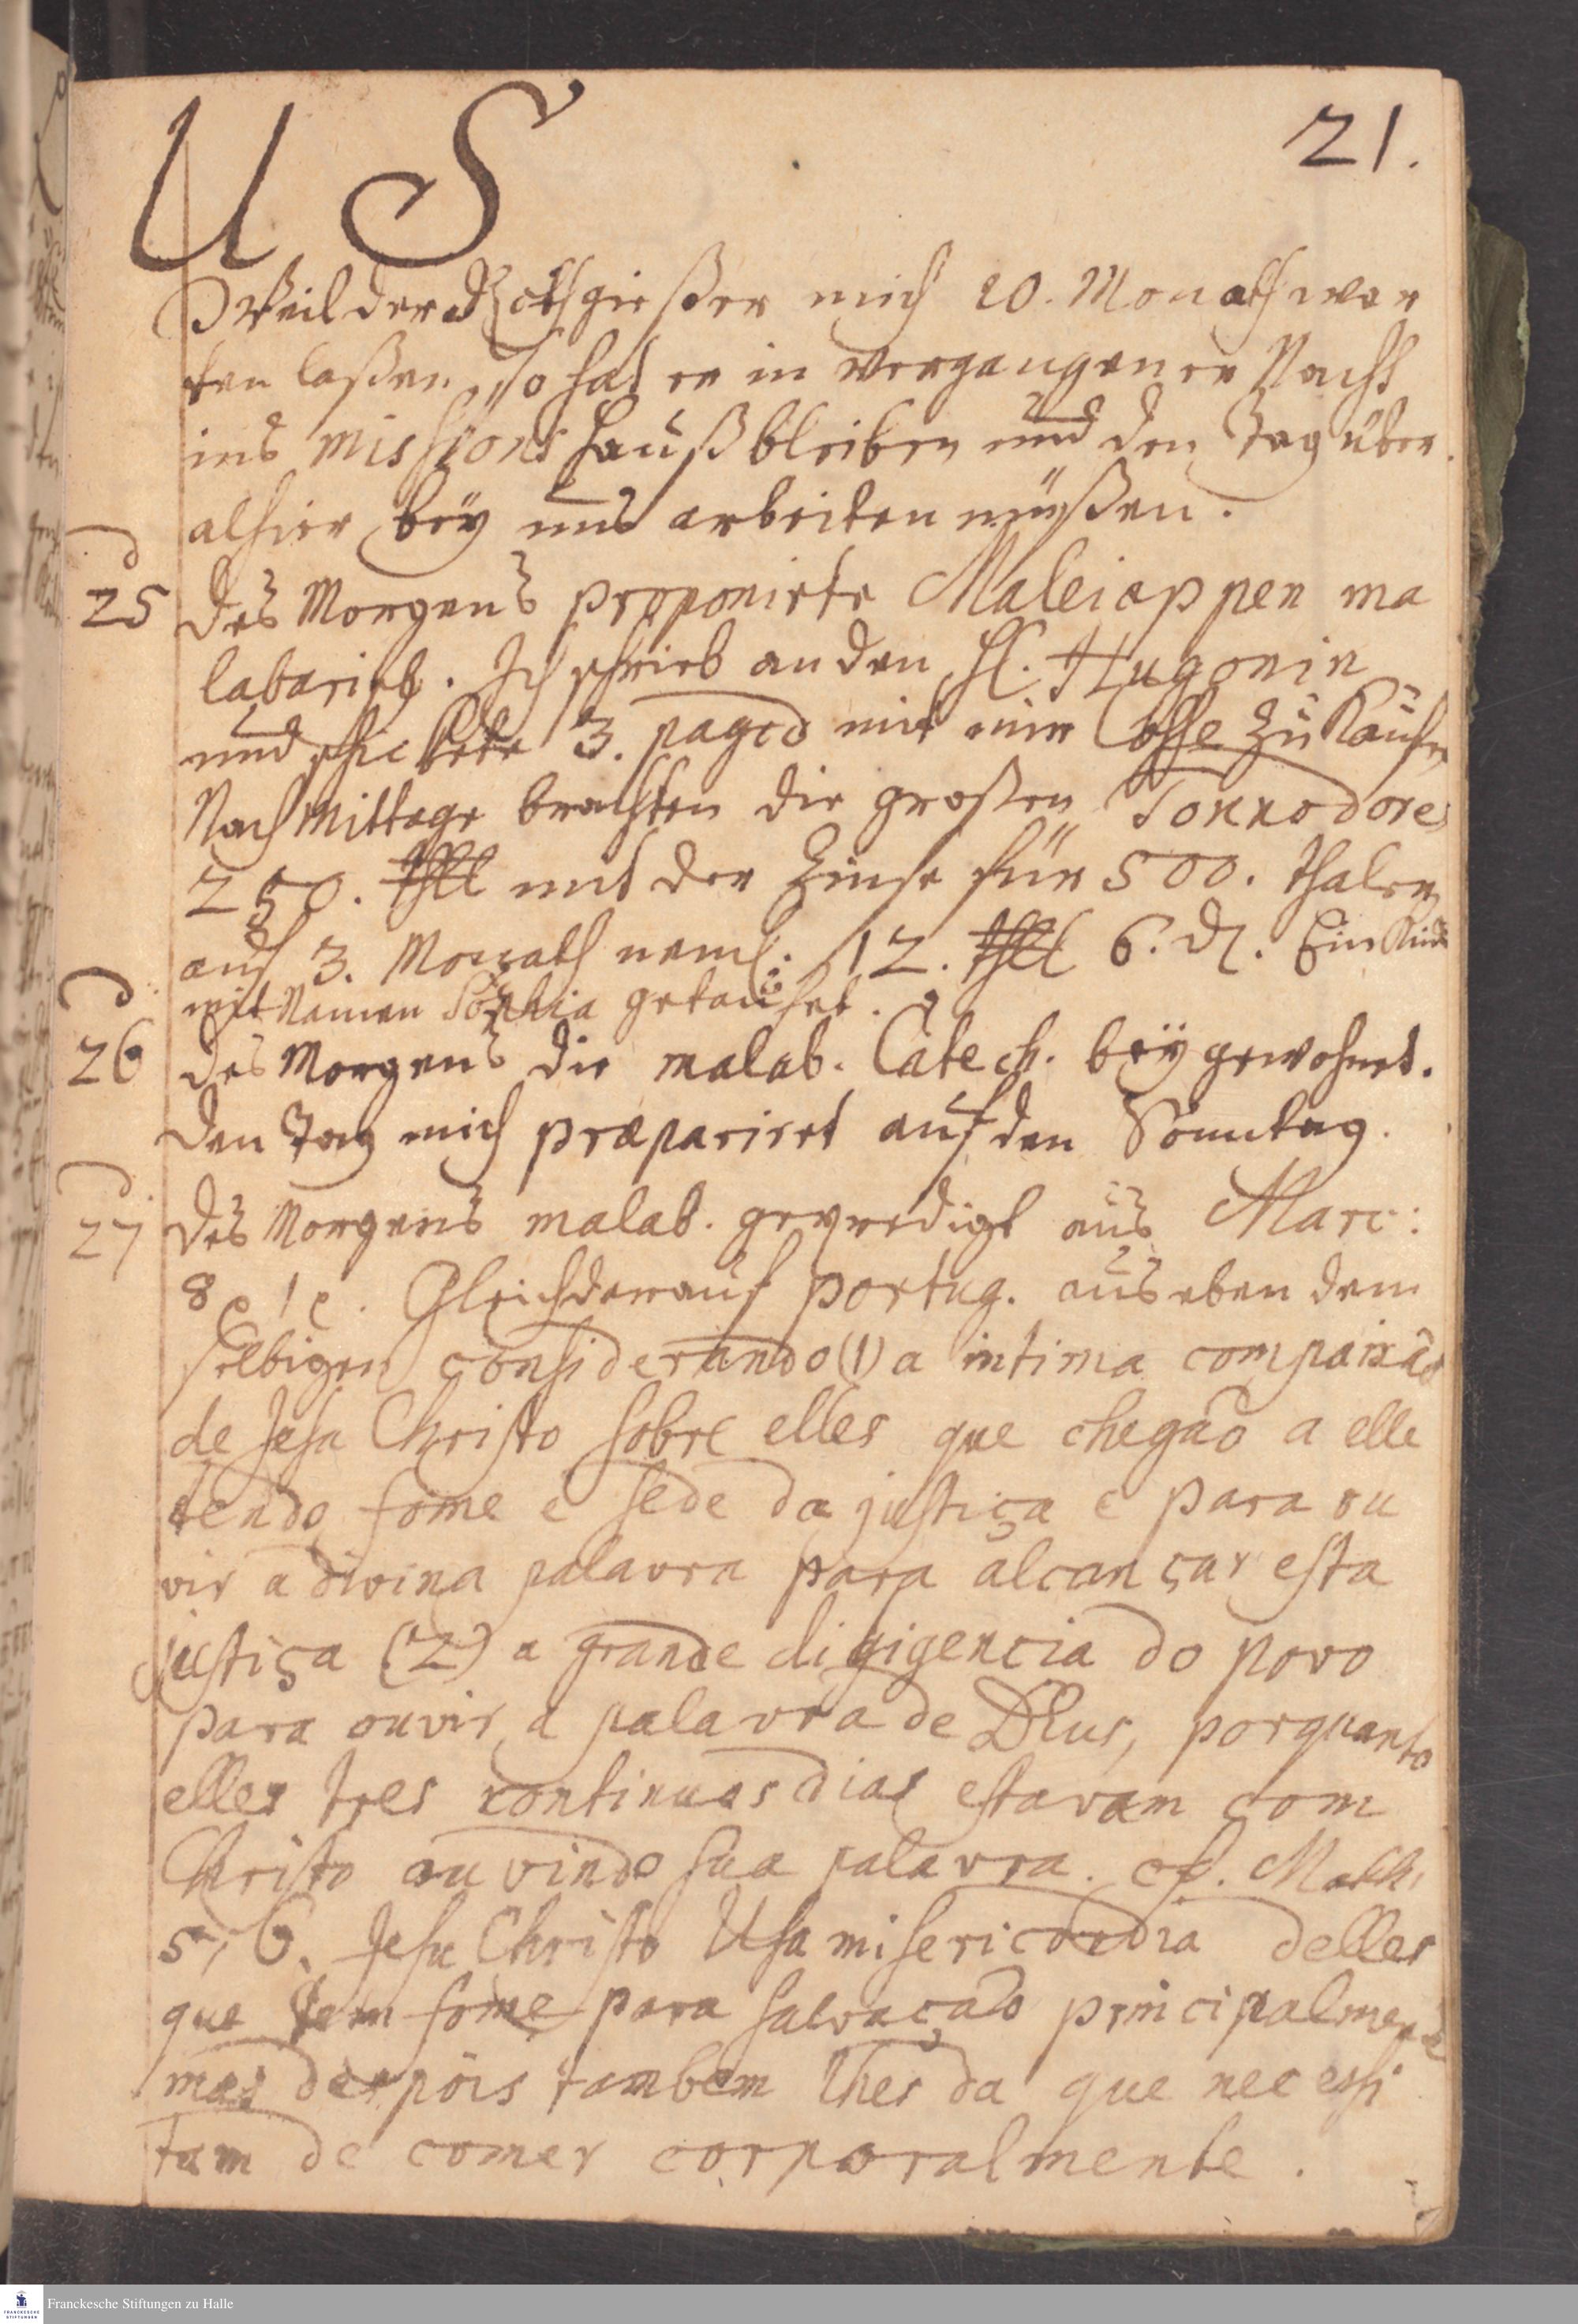 21.
U S
Weil der Rothgießer mich 20. Monath war
ten laßen, so hat er in vergangener Nacht
ins missions Hauß bleiben und den Tag über
alhier bey uns arbeiten müßen.
25 Des Morgens proponirte Maleiappen ma
labarisch. Ich schrieb an den H. Hugonin
und schickete 3. pagod mir eine Cosse zu Kaufen
Nach Mittage brachten die großen Torrodores
250. thll mit der Zinse für 500. thaler
auf 3. Monath neml. 12. thll 6. Ein Kind
mit Namen Sophia getaufet.
26 Des Morgens die malab. Catech. beygewohnet.
den Tag mich præpariret auf den Sonntag.
27 Des Morgens malab. gepredigt aus Marc:
8, 1 Gleich darauf portug. aus eben dem
selbigen considerando (1) a intima compaixaõ
de Jesu Christo sobre elles que chegaõ a elle
tendo fome e sede da justiça e para ou
vir a divina palavra para alcançar esta
justiça (2) a grande digigencia do povo
para ouvir a palavra de DEus, porquanto
elles tres continuos dias estavam com
Christo ouvindo sua palavra. cf. Matth.
5, 6. Jesu Christo Usa misericordia delles
que tem fome para salvaçaõ principalmente
mas despois tambem lhes da que necessi
tam de comer corporalmente.
Franckesche Stiftungen zu Halle